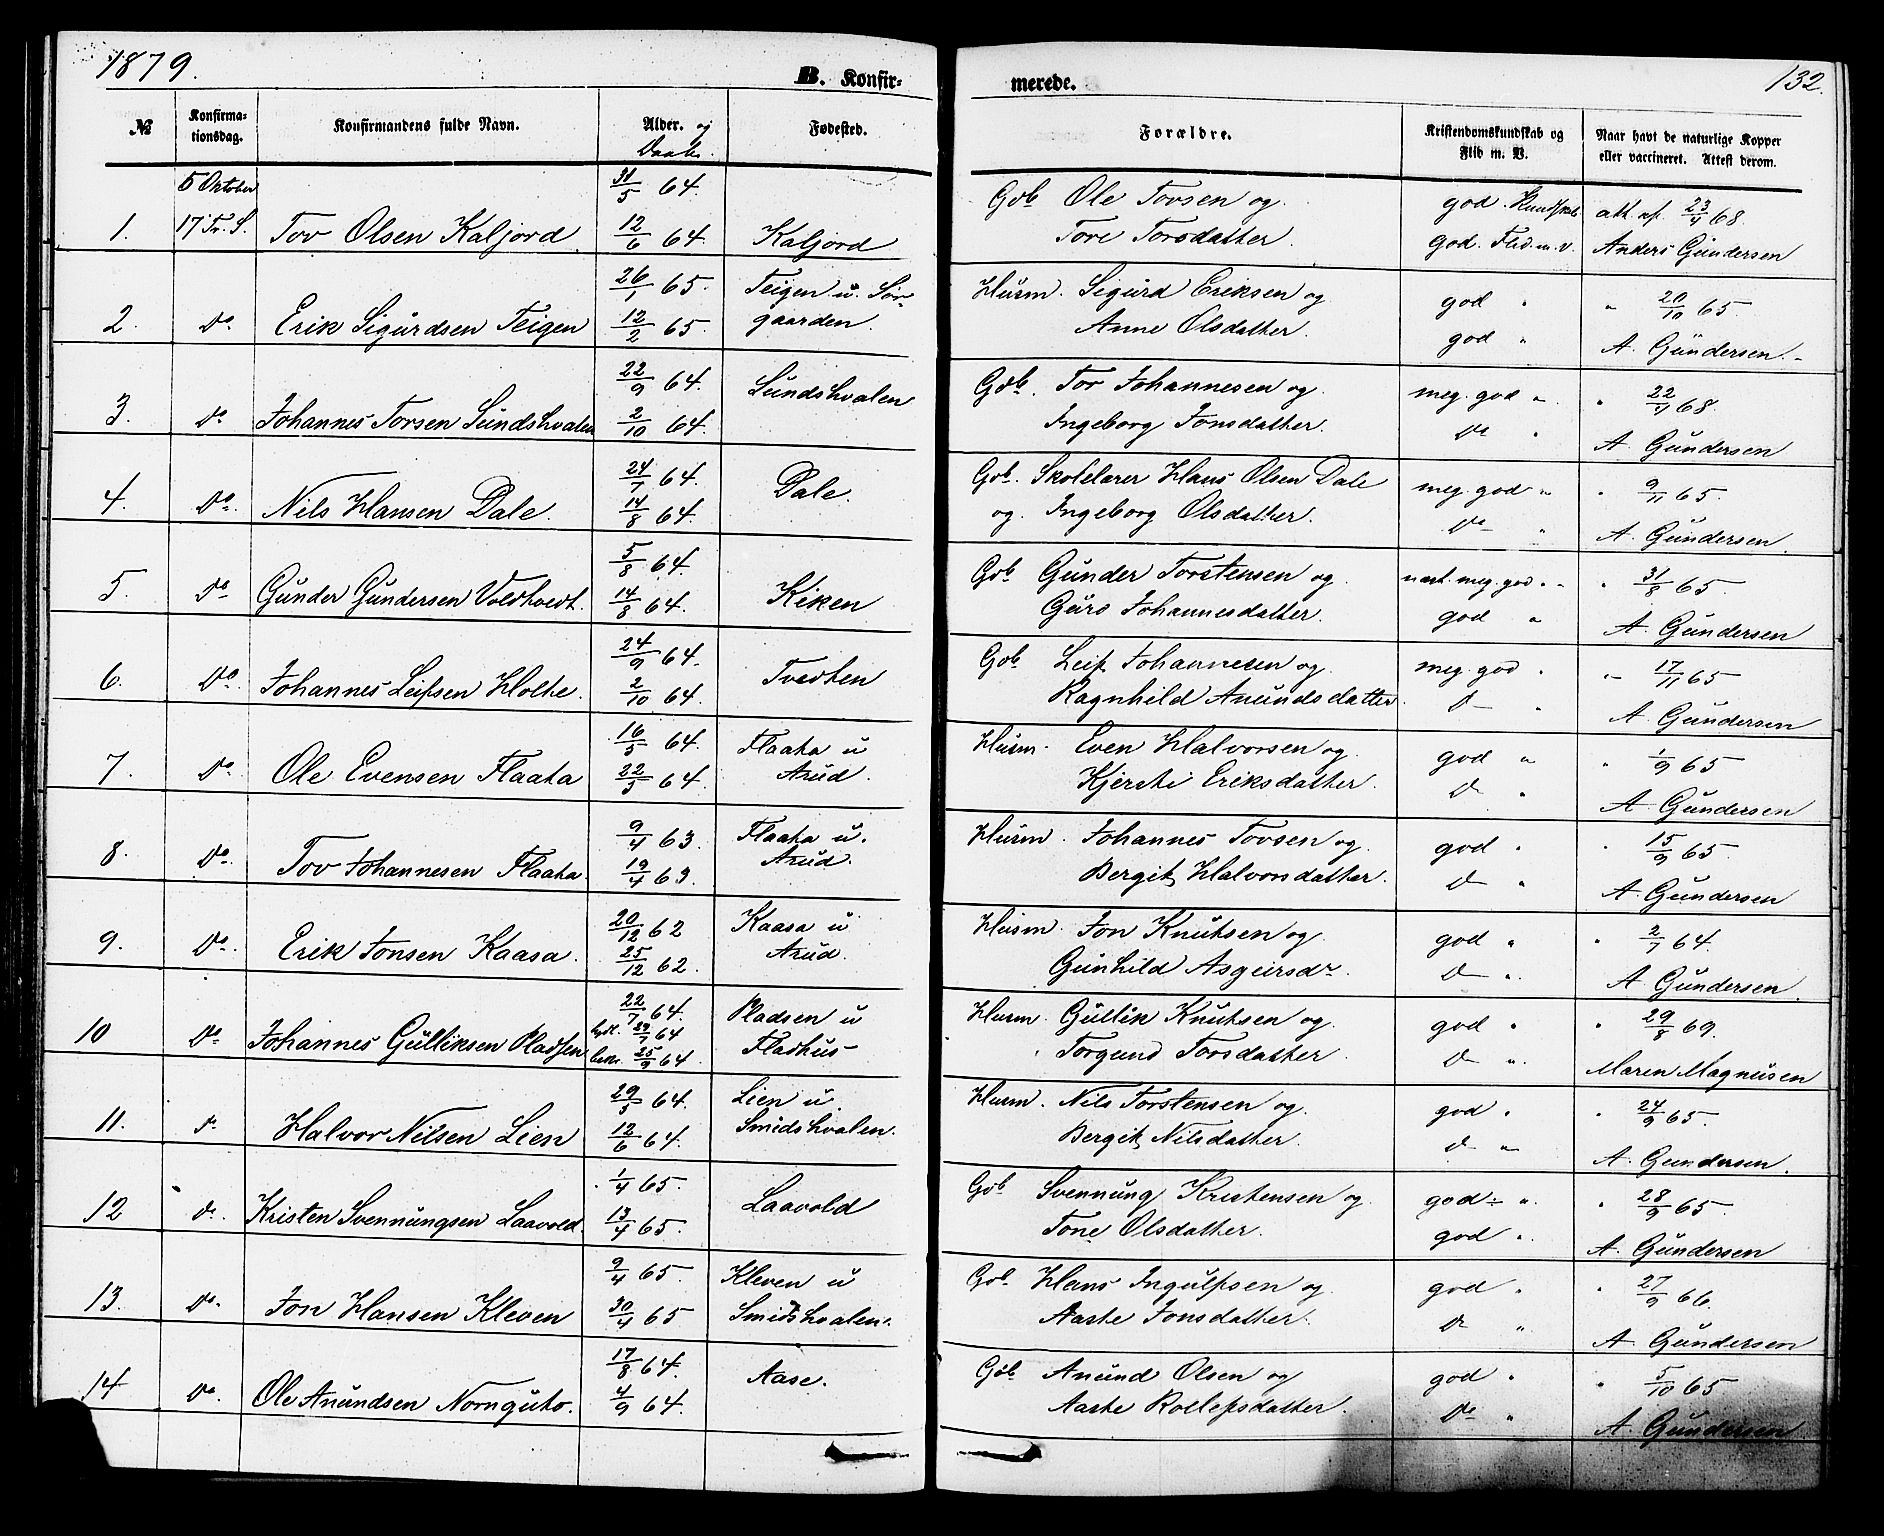 1879.
B. Konfir-
merede.
132.
№
Konfirma-
tionsdag.
Konfirmandens fulde Navn.
Alder. og
Daab.
Fødested.
Forældre.
Kristendomskundskab og
Flid m. V.
Naar havt de naturlige Kopper
eller vaccineret. Attest derom.
5 Oktober 31/5 64. Gdb Ole Tovsen og god. Kundskab att. af. 23/4 68.
1. 17 Tr. S. Tov Olsen Kaljord 12/6 64. Kaljord Tore Torsdatter. god. Flid. m. v. Anders Gundersen
26/1 65. Teigen u. Sør- Husm. Sigurd Eriksen og god " " 20/10 65.
2. Do. Erik Sigurdsen Teigen 12/2 65. gaarden. Anne Olsdatter. god " A. Gundersen.
22/9 64. Sundshvalen Gdb. Tor Johannesen og meg. god " " 22/4 68.
3. Do Johannes Torsen Sundshvalen 2/10 64. Ingeborg Jonsdatter. Do " A Gundersen
24/7 64. Dale. Gdb. Skolelærer Hans Olsen Dale meg. god " " 9/11 65.
4. Do. Nils Hansen Dale. 14/8 64. og Ingeborg Olsdatter. Do " A. Gundersen.
5/8 64. Gdb Gunder Torstensen og næst. meg. god " " 31/8 65.
5. Do Gunder Gundersen Voldtvedt. 14/8 64. Kiken Guro Johannesdatter. god " A. Gundersen
24/9 64. Gdb Leif Johannesen og meg. god " " 17/11 65
6. Do. Johannes Leifsen Holte. 2/10 64. Tvedten Ragnhild Anundsdatter. D " A. Gundersen
16/5 64. Flaata u Husm. Even Halvorsen og god " " 1/9 65
7. Do. Ole Evensen Flaata 22/5 64. Arud. Kjersti Eriksdatter. D " A Gundersen
9/4 63. Flaata u. Husm. Johannes Tovsen og god " " 15/9 65.
8. Do. Tov Johannesen Flaata. 19/4 63. Arud. Bergit Halvorsdatter. D " A Gundersen
20/12 62 Kaasa u Husm. Jon Knutsen og god " " 2/7 64.
9. Do. Erik Jonsen Kaasa. 25/12 62. Arud. Gunhild Asgeirsdr. D " A Gundersen.
22/7 64. Pladsen u Husm. Gullik Knutsen og god " " 29/8 69.
10 Do Johannes Gulliksen Pladsen 64 25/9 64. Fladhus Torgund Torsdatter. D " Maren Magnusen
29/5 64. Lien u. Husm. Nils Torstensen og god " " 24/9 65.
11. D. Halvor Nilsen Lien 12/6 64. Smidshvalen. Bergit Nilsdatter. D " A. Gundersen.
1/4 65. Gdb Svennung Kristensen og god " " 28/9 65.
12 D. Kristen Svennungsen Laavold. 13/4 65. Laavold Tone Olsdatter. god " A. Gundersen
9/4 65. Kleven u Gdb. Hans Ingulfsen og god " " 27/9 66.
13. Do. Jon Hansen Kleven 30/4 65 Smidshvalen. Aaste Jonsdatter. Do " A Gundersen
17/8 64. Aase. Gdb Anund Olsen og god " " 5/10 65
14 Do. Ole Anundsen Nornguto. 4/9 64. Aaste Rollefsdatter. Do " A. Gundersen